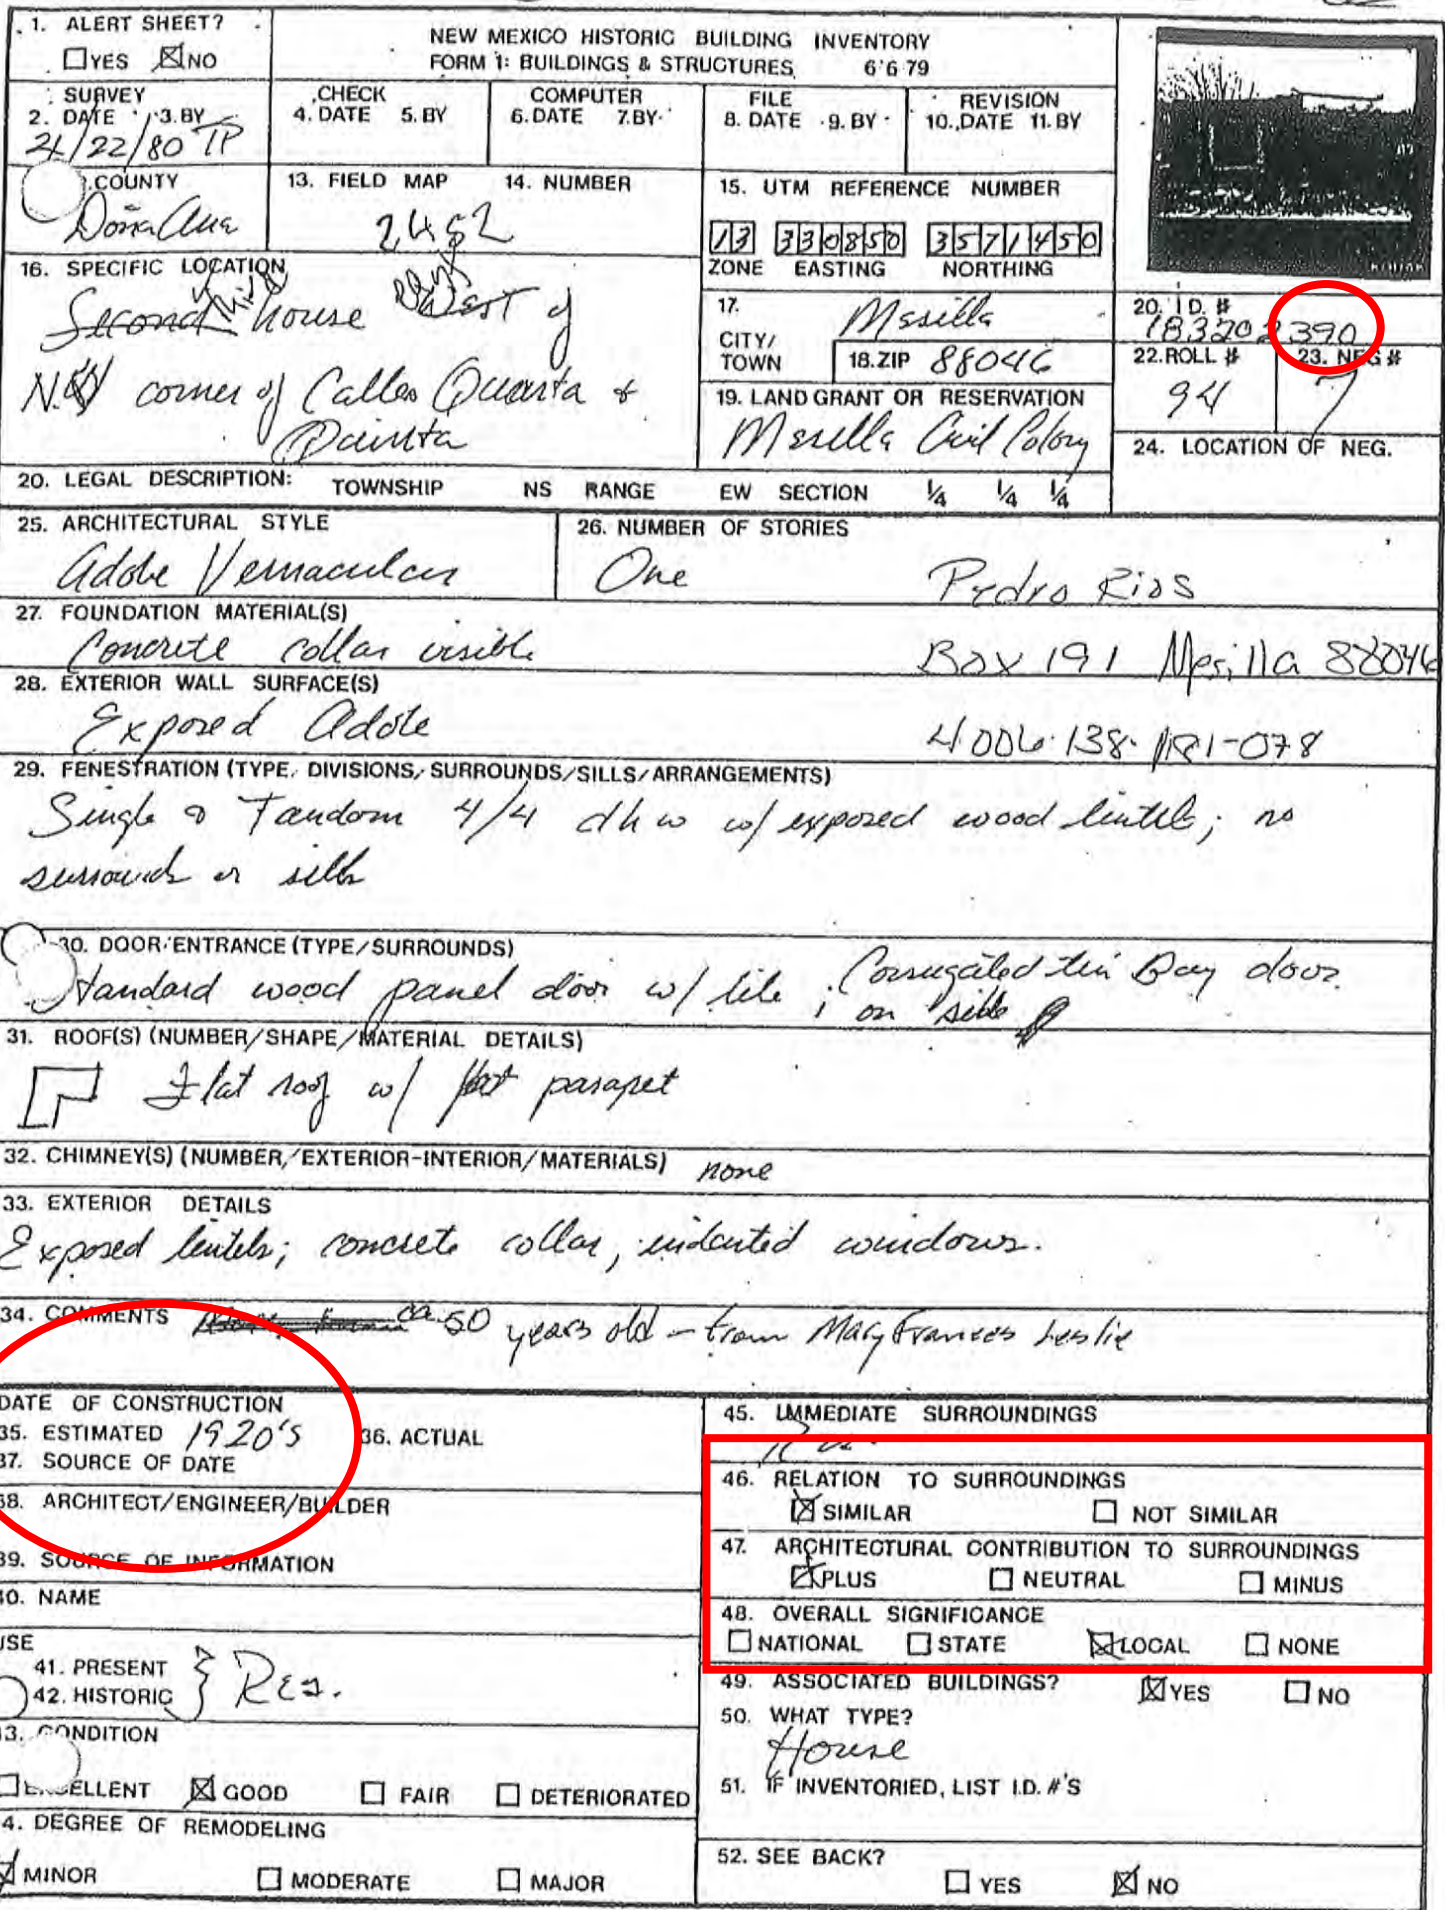 1. ALERT SHEET?
☐YES ☒NO
NEW MEXICO HISTORIC BUILDING INVENTORY
FORM 1: BUILDINGS & STRUCTURES 6'6'79
SURVEY
2. DATE 3. BY
4/22/80 TP
CHECK
4. DATE 5. BY
COMPUTER
6. DATE 7. BY
FILE
8. DATE 9. BY
REVISION
10. DATE 11. BY
COUNTY
Doña Ana
13. FIELD MAP 14. NUMBER
2452
15. UTM REFERENCE NUMBER
13 330850 3571450
ZONE EASTING NORTHING
16. SPECIFIC LOCATION
Third house West of
N. corner of Calles Quarta &
Quinta
17. CITY/TOWN
Mesilla
18. ZIP 88046
19. LAND GRANT OR RESERVATION
Mesilla Civil Colony
20. I D. #
183202390
22. ROLL # 23. NEG #
94 7
24. LOCATION OF NEG.
20. LEGAL DESCRIPTION: TOWNSHIP NS RANGE EW SECTION ¼ ¼ ¼
25. ARCHITECTURAL STYLE
Adobe Vernacular
26. NUMBER OF STORIES
One
Pedro Rios
27. FOUNDATION MATERIAL(S)
Concrete collar visible
Box 191 Mesilla 88046
28. EXTERIOR WALL SURFACE(S)
Exposed Adobe
4006-138-181-078
29. FENESTRATION (TYPE, DIVISIONS, SURROUNDS/SILLS/ARRANGEMENTS)
Single & Tandom 4/4 dhw w/ exposed wood lintels; no
surrounds or sills
30. DOOR/ENTRANCE (TYPE/SURROUNDS)
Standard wood panel door w/ lite; Corrugated tin Bay door
on side
31. ROOF(S) (NUMBER/SHAPE/MATERIAL DETAILS)
Flat roof w/ parapet
32. CHIMNEY(S) (NUMBER/EXTERIOR-INTERIOR/MATERIALS) none
33. EXTERIOR DETAILS
Exposed lintels; concrete collar, indented windows.
34. COMMENTS ca. 50 years old - from Mary Frances Leslie
DATE OF CONSTRUCTION
35. ESTIMATED 1920's 36. ACTUAL
37. SOURCE OF DATE
38. ARCHITECT/ENGINEER/BUILDER
39. SOURCE OF INFORMATION
40. NAME
USE
41. PRESENT
42. HISTORIC
Res.
43. CONDITION
☐EXCELLENT ☒GOOD ☐FAIR ☐DETERIORATED
4. DEGREE OF REMODELING
☒MINOR ☐MODERATE ☐MAJOR
45. IMMEDIATE SURROUNDINGS
46. RELATION TO SURROUNDINGS
☒SIMILAR ☐NOT SIMILAR
47. ARCHITECTURAL CONTRIBUTION TO SURROUNDINGS
☒PLUS ☐NEUTRAL ☐MINUS
48. OVERALL SIGNIFICANCE
☐NATIONAL ☐STATE ☒LOCAL ☐NONE
49. ASSOCIATED BUILDINGS? ☒YES ☐NO
50. WHAT TYPE?
House
51. IF INVENTORIED, LIST I.D. #'S
52. SEE BACK?
☐YES ☒NO